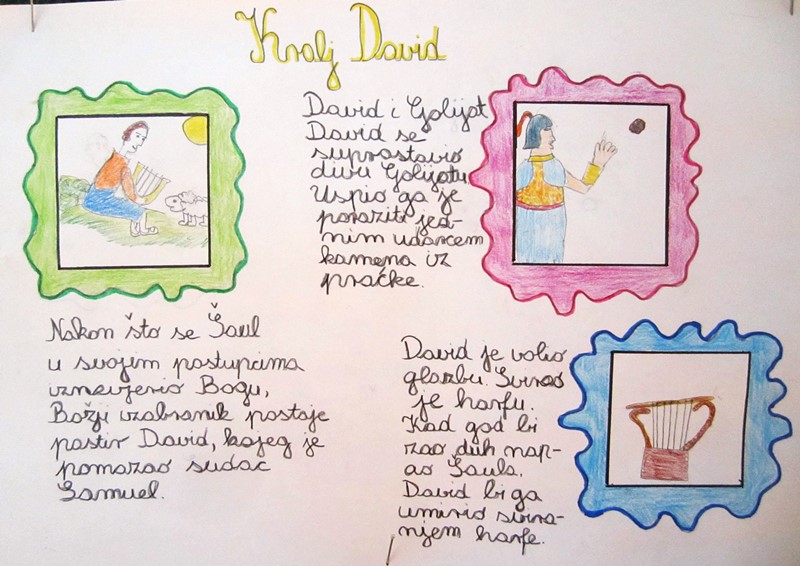 Kralj David
David i Golijat
David se
suprostavio
divu Golijatu.
Uspio ga je
poraziti jed-
nim udarcem
kamena iz
praćke.
Nakon što se Šaul
u svojim postupcima
iznevjerio Bogu,
Božji izabranik postaje
pastir David, kojeg je
pomazao sudac
Samuel.
David je volio
glazbu. Svirao
je harfu.
Kad god bi
zao duh nap-
ao Šaula,
David bi ga
umirio svira-
njem harfe.